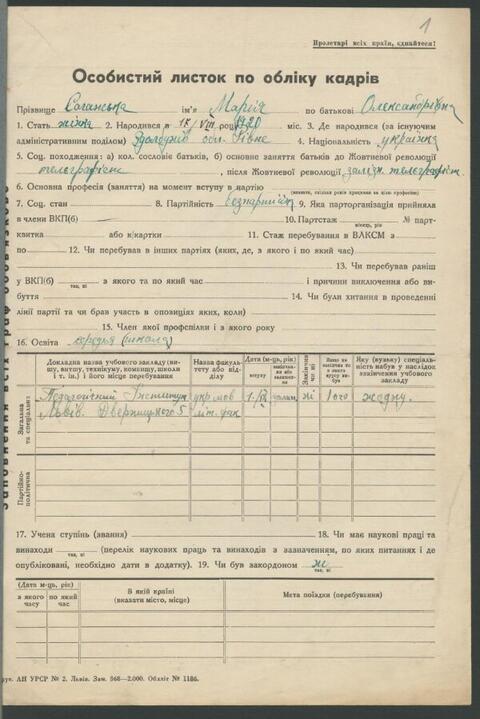 1
Пролетарі всіх країн, єднайтеся!
Особистий листок по обліку кадрів
Прізвище Соганська ім'я Марія по батькові Олександрівна
1. Стать жіноча 2. Народився в 17/VIII 1920 році міс. 3. Де народився (за існуючим
адміністративним поділом) Здолбунів обл. Рівне 4. Національність українка
5. Соц. походження: а) кол. сословіє батьків, б) основне заняття батьків до Жовтневої революції
телеграфіст, після Жовтневої революції залізн. телеграфіст.
6. Основна професія (заняття) на момент вступу в партію
(вказати, скільки років працював по цією професією)
7. Соц. стан 8. Партійність безпартійн 9. Яка парторганізація прийняла
в члени ВКП(б) 10. Партстаж № парт-
місяць, рік
квитка або к/картки 11. Стаж перебування в ВЛКСМ з
по 12. Чи перебував в інших партіях (яких, де, з якого і по який час)
13. Чи перебував раніш
у ВКП(б) з якого та по який час і причини виключення або ви-
так, ні
буття 14. Чи були хитання в проведенні
лінії партії та чи брав участь в опозиціях яких, коли)
15. Член якої профспілки і з якого року
16. Освіта середня (школа)
Докладна назва учбового закладу (ви-
шу, витшу, технікуму, комвишу, школи
і т. ін.) і його місце перебування
Назва факуль-
тету або від-
ділу
Дата (м-ць, рік)
вступу
закінчен-
ня або
залишен-
ня
Закінчив
чи ні
Якщо не
закінчив
то з якого
курсу ви-
був
Яку (вузьку) спеціаль-
ність набув в наслідок
закінчення учбового
закладу
Загальна
та спеціальна
Педагогічний Інститут укр мов 1/IX ні 1ого жодну.
Львів. Дверницького 5 літ. фак
Партійно-
політична
17. Учена ступінь (звання) 18. Чи має наукові праці та
винаходи (перелік наукових праць та винаходів з зазначенням, по яких питаннях і де
так, ні
опубліковані, необхідно дати в додатку). 19. Чи був закордоном ні
так, ні
(Дата м-ць, рік)
з якого
часу
по який
час
В якій країні
(вказати місто, місце)
Мета поїздки (перебування)
рук. АН УРСР № 2. Львів. Зам. 968—2.000. Обліт № 1186.